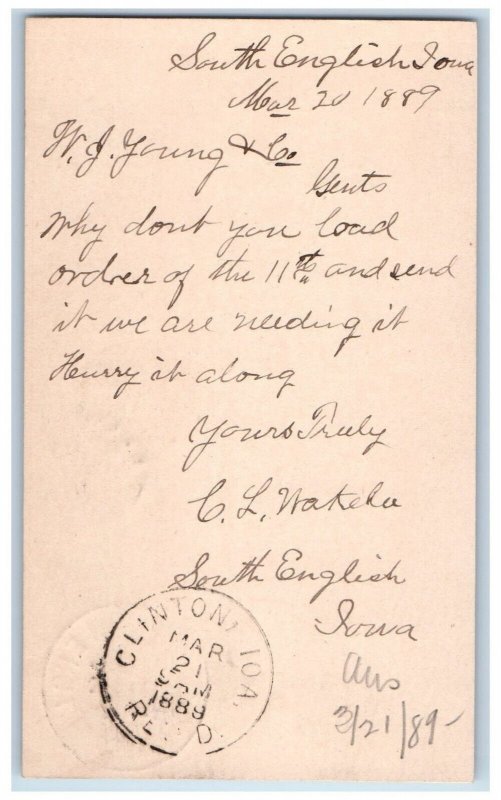 South English Iowa
Mar 20 1889
W. J. Young & Co
Gents
Why dont you load
order of the 11th and send
it we are needing it
Hurry it along
Yours Truly
C. L. 
South English
Iowa
CLINTON, IOA.
MAR
21
9AM
1889
REC'D.
Ans
3/21/89-